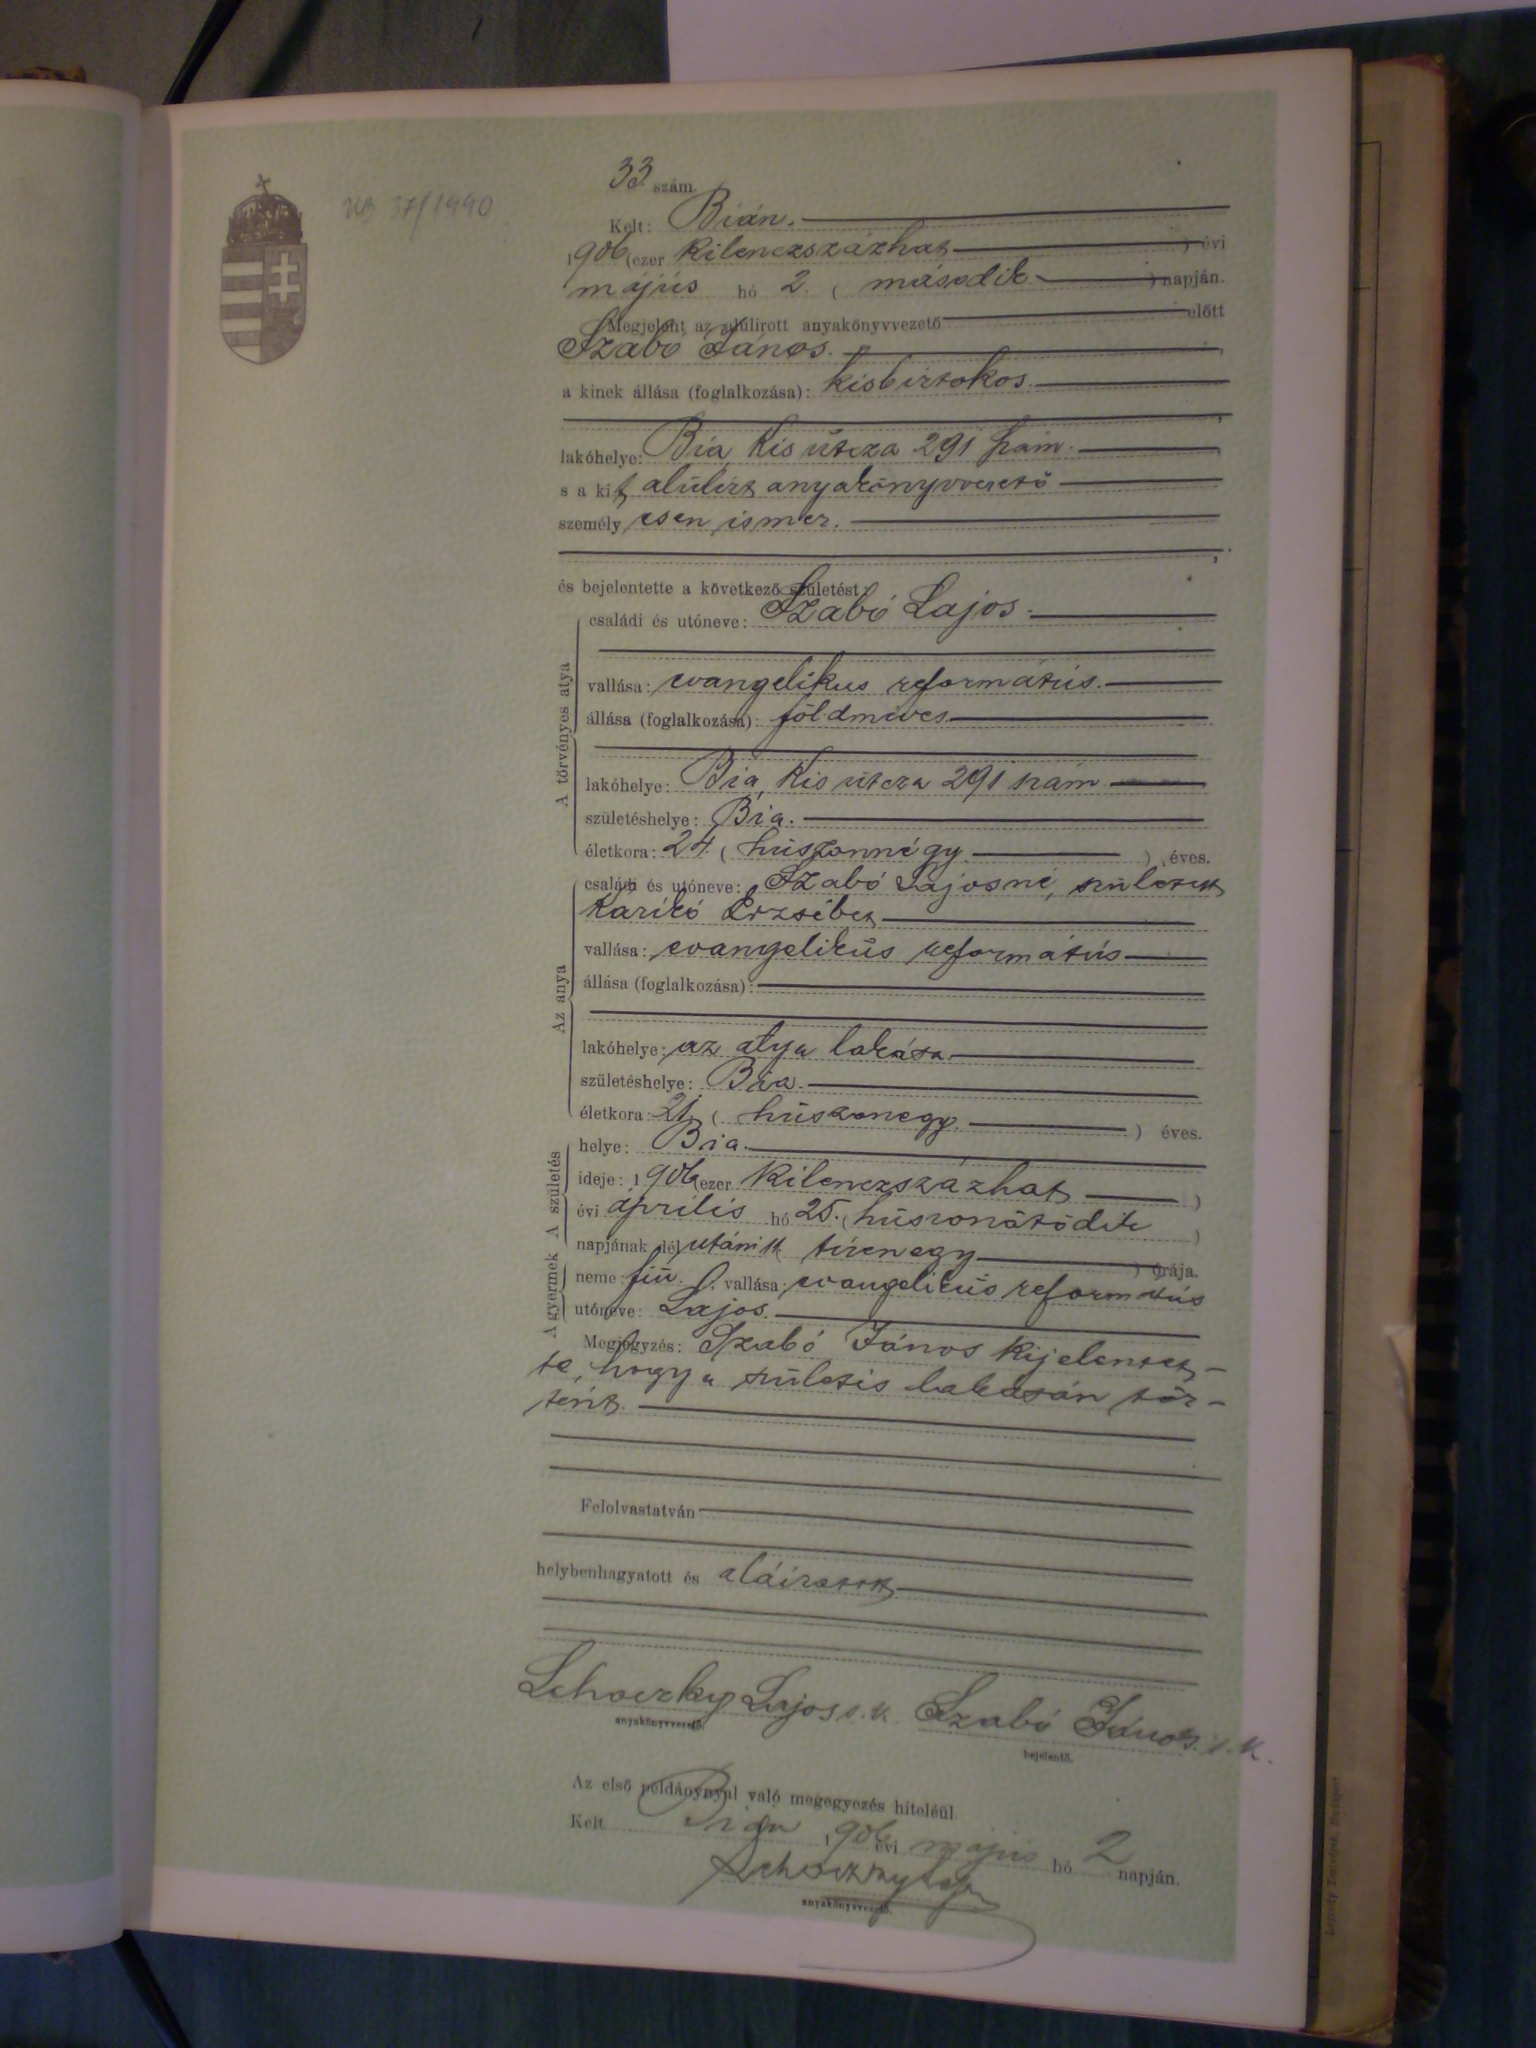 NB 37/1990
33 szám.
Kelt: Bián.
1906 (ezer kilenczszázhat ) évi
május hó 2. ( második ) napján.
Megjelent az alulirott anyakönyvvezető előtt
Szabó János.
a kinek állása (foglalkozása): kisbirtokos.
lakóhelye: Bia, Kis útcza 291 szám.
s a kit alúlírt anyakönyvvezető
személy esen ismer.
és bejelentette a következő születést:
A törvényes atya
családi és utóneve: Szabó Lajos.
vallása: evangelikus református.
állása (foglalkozása): földmíves
lakóhelye: Bia, Kis útcza 291 szám
születéshelye: Bia.
életkora: 24. ( húszonnégy. ) éves.
Az anya
családi és utóneve: Szabó Lajosné, született
Karikó Erzsébet
vallása: evangelikús református
állása (foglalkozása):
lakóhelye: az atya lakása.
születéshelye: Bia.
életkora: 21. ( húszonegy. ) éves.
A születés
helye: Bia.
ideje: 1906 (ezer kilenczszázhat )
évi április hó 25. ( húszonötödik )
napjának dél utáni tizenegy ) órája.
A gyermek
neme: fiú. vallása: evangelikús református
utóneve: Lajos.
Megjegyzés: Szabó János kijelentet-
te, hogy a születés lakásán tör-
tént.
Felolvastatván
helybenhagyatott és aláiratott
Schoczky Lajos s. k. Szabó János. s. k.
anyakönyvvezető. bejelentő.
Az első példánynyal való megegyezés hiteléül.
Kelt Bián 1906 évi május hó 2 napján.
Schoczky Lajos
anyakönyvvezető.